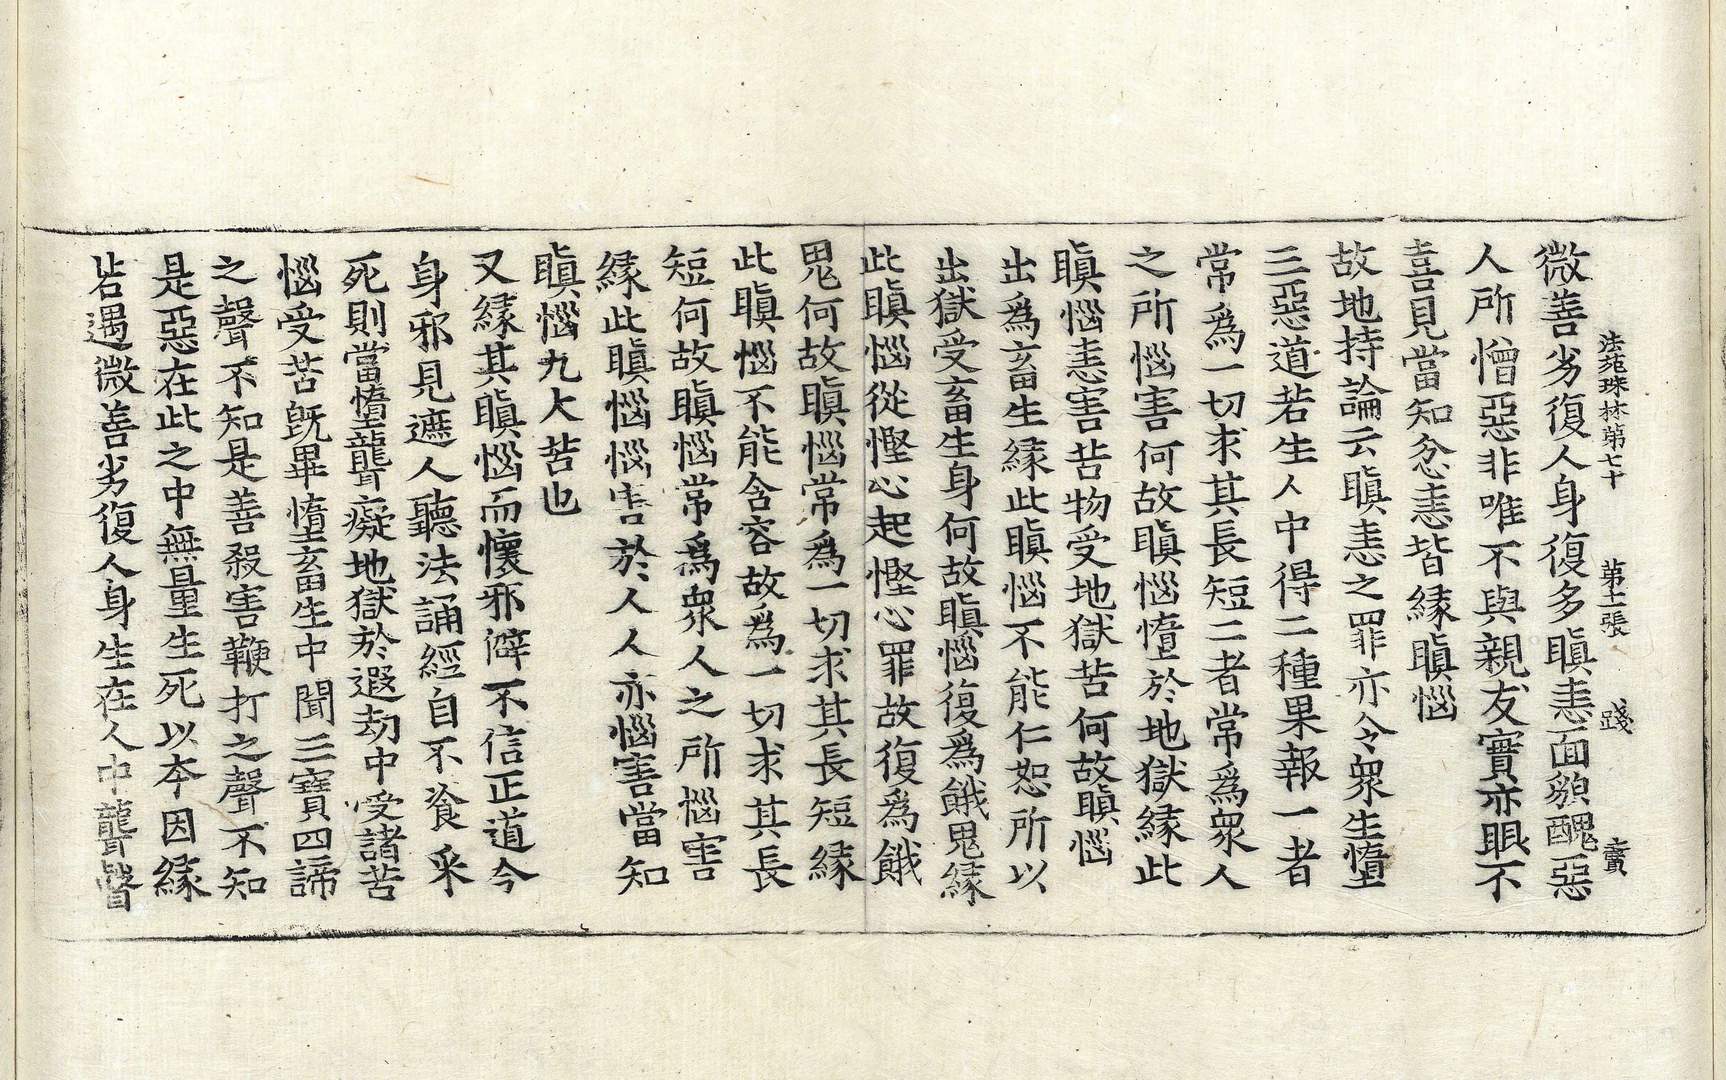 法苑珠林第七十 第十二張 踐 賣
微善劣復人身復多瞋恚面䫉醜惡
人所憎惡非唯不與親友實亦眼不
喜見當知忿恚皆緣瞋惱
故地持論云瞋恚之罪亦令衆生墮
三惡道若生人中得二種果報一者
常爲一切求其長短二者常爲衆人
之所惱害何故瞋惱墮於地獄緣此
瞋惱恚害苦物受地獄苦何故瞋惱
出爲畜生緣此瞋惱不能仁恕所以
出獄受畜生身何故瞋惱復爲餓鬼緣
此瞋惱從慳心起慳心罪故復爲餓
鬼何故瞋惱常爲一切求其長短緣
此瞋惱不能含容故爲一切求其長
短何故瞋惱常爲衆人之所惱害
緣此瞋惱惱害於人人亦惱害當知
瞋惱九大苦也
又緣其瞋惱而懷邪僻不信正道今
身邪見遮人聽法誦經自不飡采
死則當墮聾癡地獄於遐劫中受諸苦
惱受苦旣畢墮畜生中聞三寶四諦
之聲不知是善殺害鞭打之聲不知
是惡在此之中無量生死以本因緣
若遇微善劣復人身生在人中聾瞽